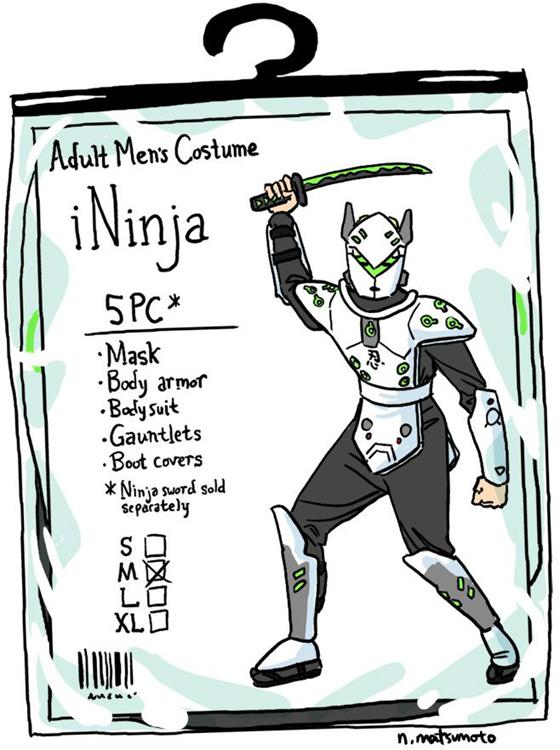 Adult Men's Costume
iNinja
5PC*
·Mask
·Body armor
·Bodysuit
·Gauntlets
·Boot covers
*Ninja sword sold
separately
S
M
L
XL
忍
n.matsumoto